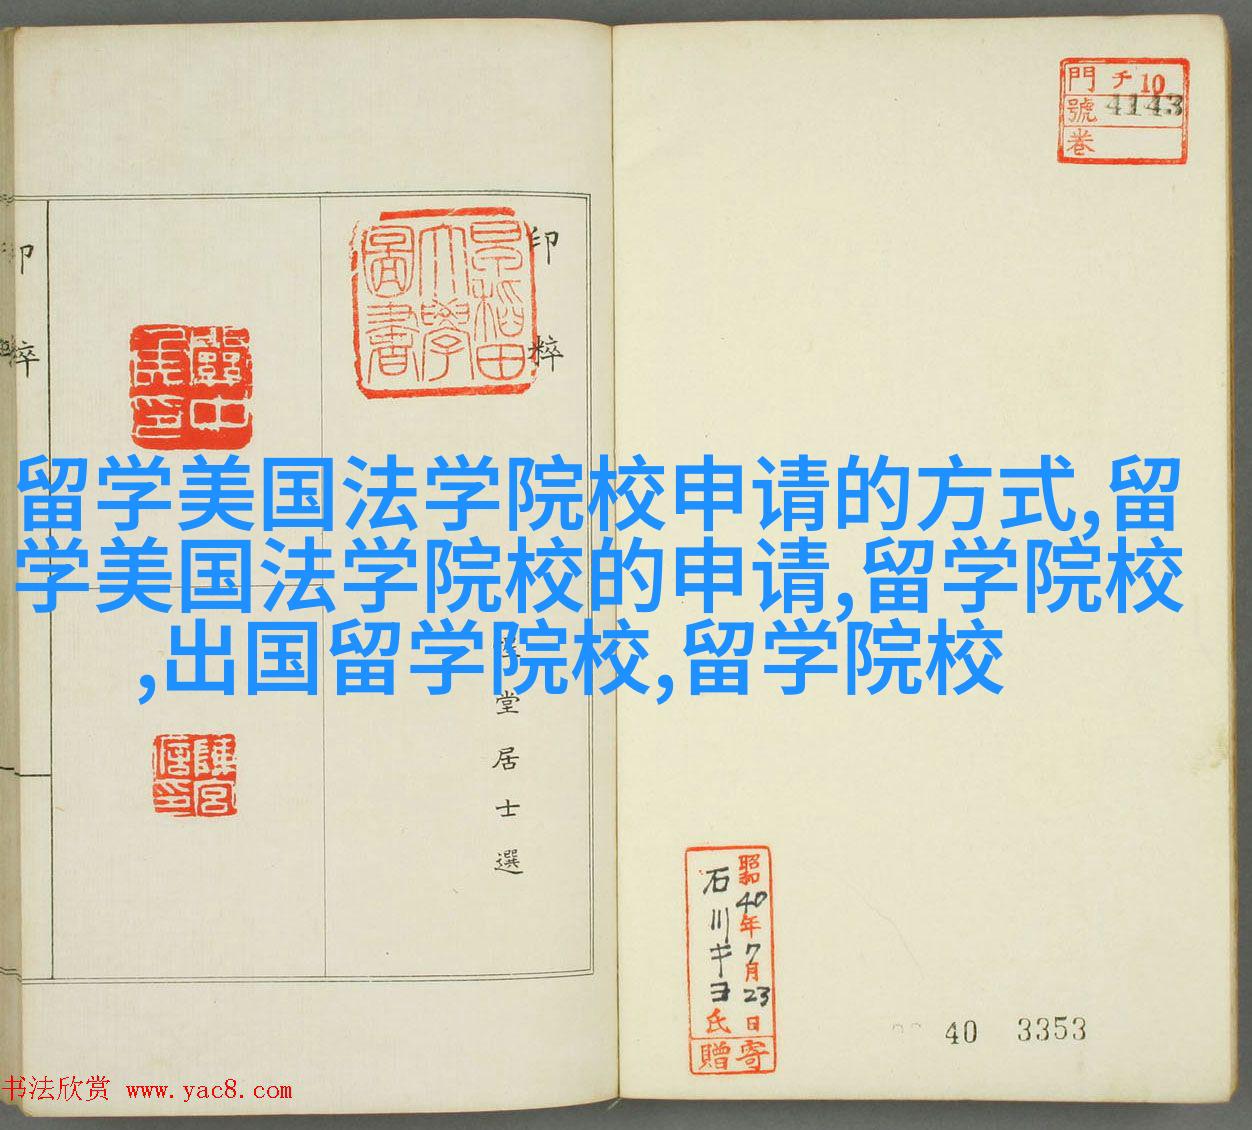 門 チ 10
號 4143
卷
印粹
早稻田大學圖書
印粹
冀中
陳宮
留学美国法学院校申请的方式,留
学美国法学院校的申请,留学院校
,出国留学院校,留学院校
堂居士選
昭和40年7月23日
石川キヨ氏
寄贈
40 3353
书法欣赏 www.yac8.com